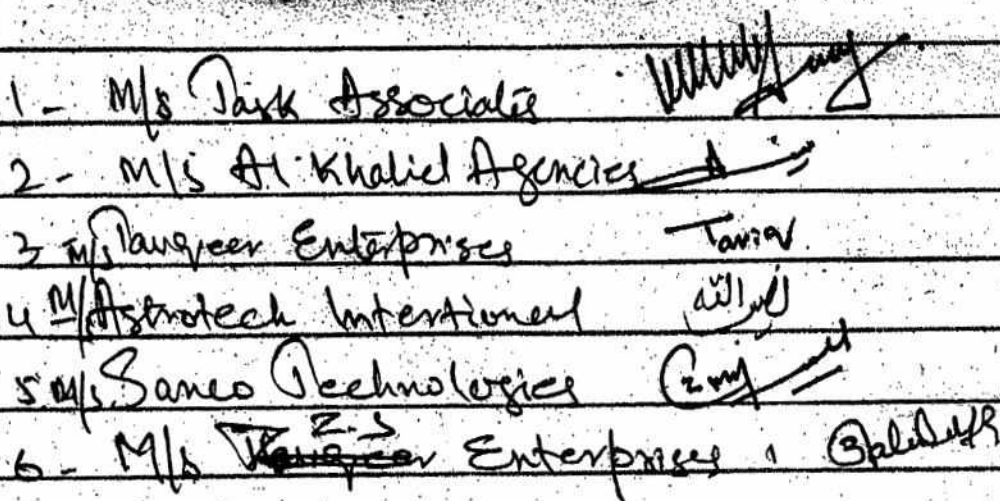 1 - M/s Task Associates
2 - M/s Al-Khalid Agencies
3 M/s Tauqeer Enterprises Tariq
4 M/s Astrotech Intertional عبدالله
5. M/s Sanco Technologies
6 - M/s Z.S Enterprises